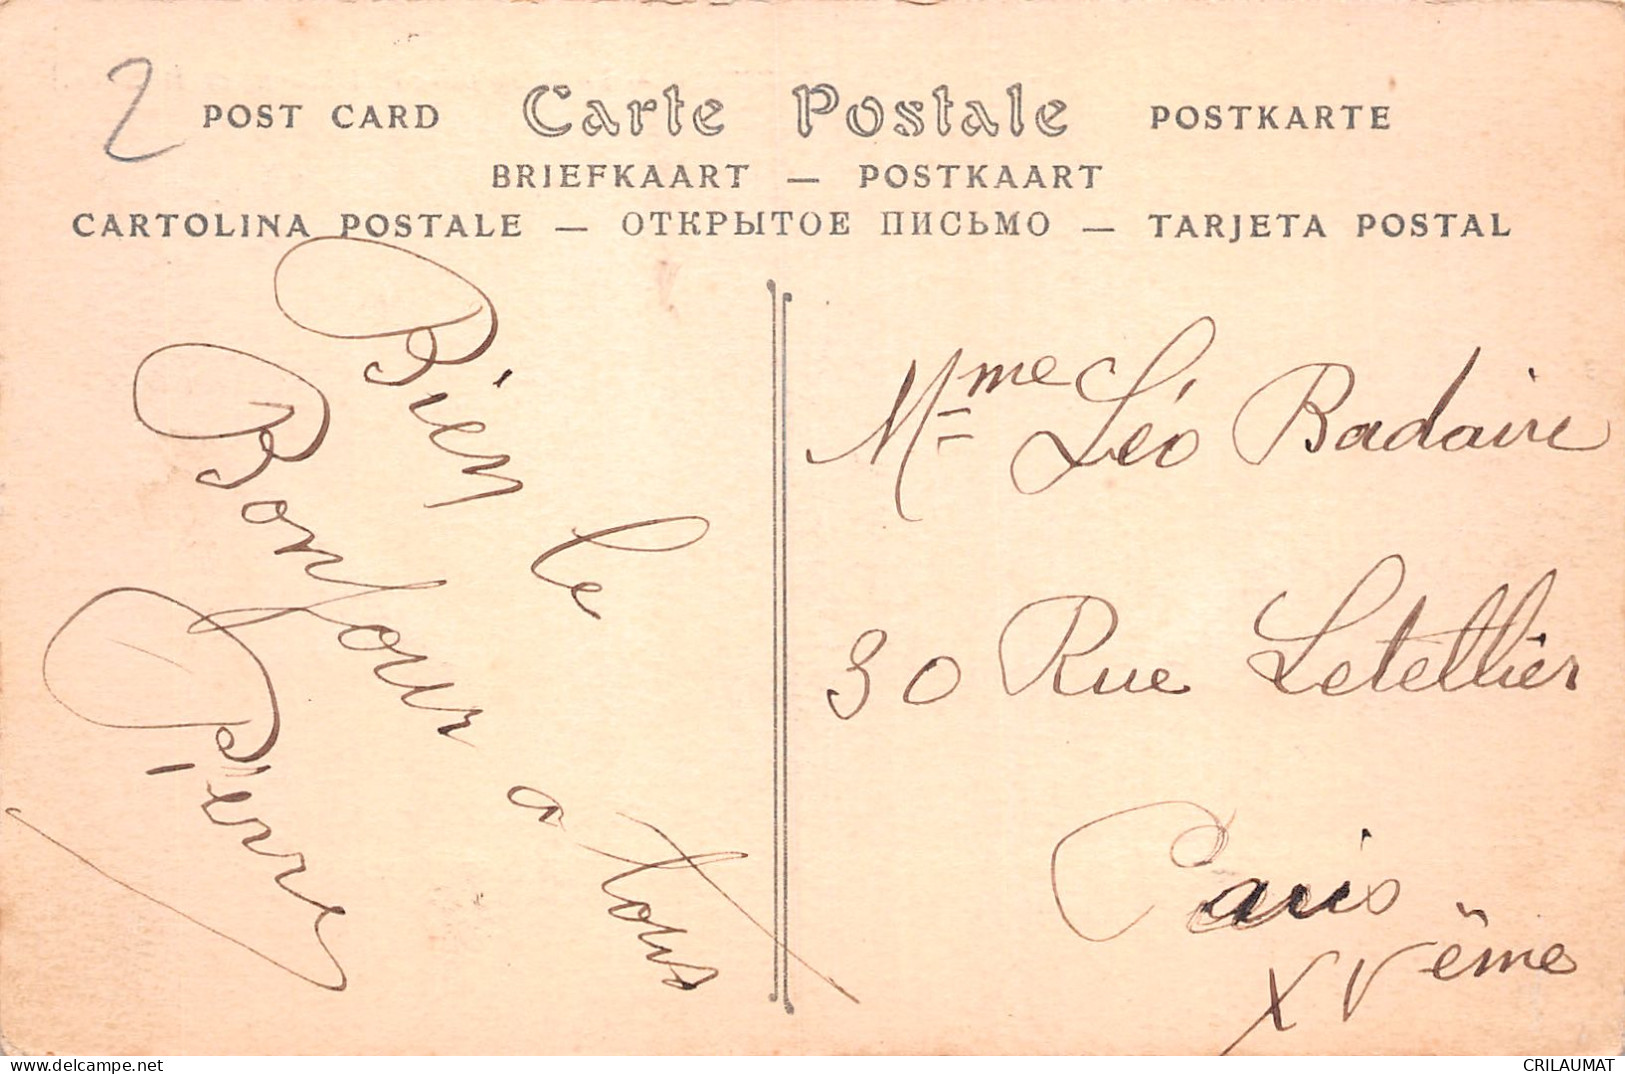 2
POST CARD Carte Postale POSTKARTE
BRIEFKAART — POSTKAART
CARTOLINA POSTALE — ОТКРЫТОЕ ПИСЬМО — TARJETA POSTAL
Bien le
Bonjour a tous
Pierre
Mme Léo Badaire
30 Rue Letellier
Paris
XVème
CRILAUMAT